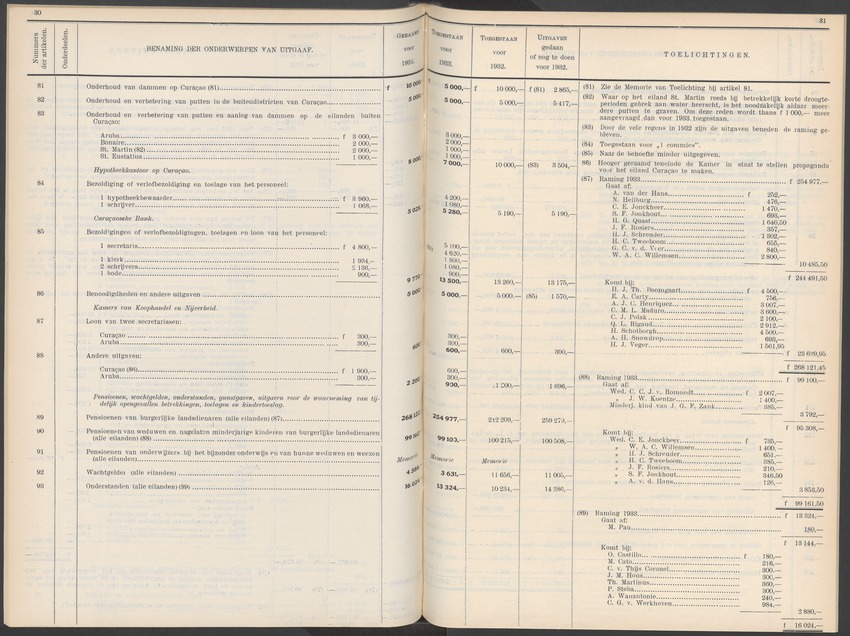 30
Nummers der artikelen.
Onderdeelen.
BENAMING DER ONDERWERPEN VAN UITGAAF.
GERAAMD voor 1934.
81 Onderhoud van dammen op Curaçao (81) f 10 000
82 Onderhoud en verbetering van putten in de buitendistricten van Curaçao 5 000
83 Onderhoud en verbetering van putten en aanleg van dammen op de eilanden buiten
Curaçao:
Aruba f 3 000,—
Bonaire 2 000,—
St. Martin (82) 2 000,—
St. Eustatius 1 000,—
8 000
Hypotheekkantoor op Curaçao.
84 Bezoldiging of verlofbezoldiging en toelage van het personeel:
1 hypotheekbewaarder f 3 960,—
1 schrijver 1 068,—
5 028
Curaçaosche Bank.
85 Bezoldigingen of verlofbezoldigingen, toelagen en loon van het personeel:
1 secretaris f 4 800,—
1 klerk 1 934,—
2 schrijvers 2 136,—
1 bode 900,—
9 770
86 Benoodigdheden en andere uitgaven 5 000
Kamers van Koophandel en Nijverheid.
87 Loon van twee secretarissen:
Curaçao f 300,—
Aruba 300,—
600
88 Andere uitgaven:
Curaçao (86) f 1 900,—
Aruba 300,—
2 200
Pensioenen, wachtgelden, onderstanden, gunstgaven, uitgaven voor de waarneming van tij-
delijk opengevallen betrekkingen, toelagen en kindertoeslag.
89 Pensioenen van burgerlijke landsdienaren (alle eilanden) (87) 268 121
90 Pensioenen van weduwen en nagelaten minderjarige kinderen van burgerlijke landsdienaren
(alle eilanden) (88) 99 161
91 Pensioenen van onderwijzers bij het bijzonder onderwijs en van hunne weduwen en weezen
(alle eilanden) Memorie
92 Wachtgelden (alle eilanden)
93 Onderstanden (alle eilanden) (89) 16 024
31
TOEGESTAAN voor 1933.
TOEGESTAAN voor 1932.
UITGAVEN gedaan of nog te doen voor 1932.
TOELICHTINGEN.
f 5 000,— f 10 000,— f (81) 2 865,—
5 000,— 5 000,— 5 417,—
3 000,—
2 000,—
1 000,—
1 000,—
7 000,— 10 000,— (83) 3 504,—
4 200,—
1 080,—
5 280,— 5 190,— 5 190,—
5 100,—
4 620,—
1 800,—
1 080,—
900,—
13 500,— 13 200,— 13 175,—
5 000,— 5 000,— (85) 1 570,—
300,—
300,—
600,— 600,— 300,—
600,—
300,—
900,— 1 200,— 1 696,—
254 977,— 242 209,— 259 279,—
99 103,— 100 215,— 100 508,—
Memorie Memorie
3 631,— 11 656,— 11 005,—
13 324,— 10 234,— 14 386,—
(81) Zie de Memorie van Toelichting bij artikel 81.
(82) Waar op het eiland St. Martin reeds bij betrekkelijk korte droogte-
perioden gebrek aan water heerscht, is het noodzakelijk aldaar meer-
dere putten te graven. Om deze reden wordt thans f 1 000,— meer
aangevraagd dan voor 1933 toegestaan.
(83) Door de vele regens in 1932 zijn de uitgaven beneden de raming ge-
bleven.
(84) Toegestaan voor „1 commies”.
(85) Naar de behoefte minder uitgegeven.
86) Hooger geraamd teneinde de Kamer in staat te stellen propaganda
voor het eiland Curaçao te maken.
(87) Raming 1933 f 254 977,—
Gaat af:
A. van der Hans f 252,—
N. Hellburg 476,—
C. E. Jonckheer 1 470,—
S. F. Jonkhout 693,—
H. G. Quast 1 640,50
J. F. Rosiers 357,—
H. J. Schreuder 1 302,—
H. C. Tweeboom 655,—
G. C. v. d. Veer 840,—
W. A. C. Willemsen 2 800,—
10 485,50
f 244 491,50
Komt bij:
H. J. Th. Boomgaart f 4 500,—
E. A. Carty 756,—
A. J. C. Henriquez 3 007,—
C. M. L. Maduro 3 600,—
C. J. Polak 2 100,—
Q. L. Rigaud 2 912,—
H. Schotborgh 4 500,—
A. H. Snowdrop 693,—
H. J. Veger 1 561,95
f 23 629,95
f 268 121,45
(88) Raming 1933 f 99 100,—
Gaat af:
Wed. C. C. J. v. Romondt f 2 007,—
„ J. W. Koentze 1 400,—
Minderj. kind van J. G. F. Zank 385,—
3 792,—
f 95 308,—
Komt bij:
Wed. C. E. Jonckheer f 735,—
„ W. A. C. Willemsen 1 400,—
„ H. J. Schreuder 651,—
„ H. C. Tweeboom 385,—
„ J. F. Rosiers 210,—
„ S. F. Jonkhout 346,50
„ A. v. d. Hans 126,—
3 853,50
f 99 161,50
(89) Raming 1933 f 13 324,—
Gaat af:
M. Pau 180,—
f 13 144,—
Komt bij:
O. Castillo f 180,—
M. Cato 216,—
C. v. Thijs Coronel 300,—
J. M. Hous 300,—
Th. Martinus 360,—
P. Steba 300,—
A. Wanautonie 240,—
C. G. v. Werkhoven 984,—
2 880,—
f 16 024,—